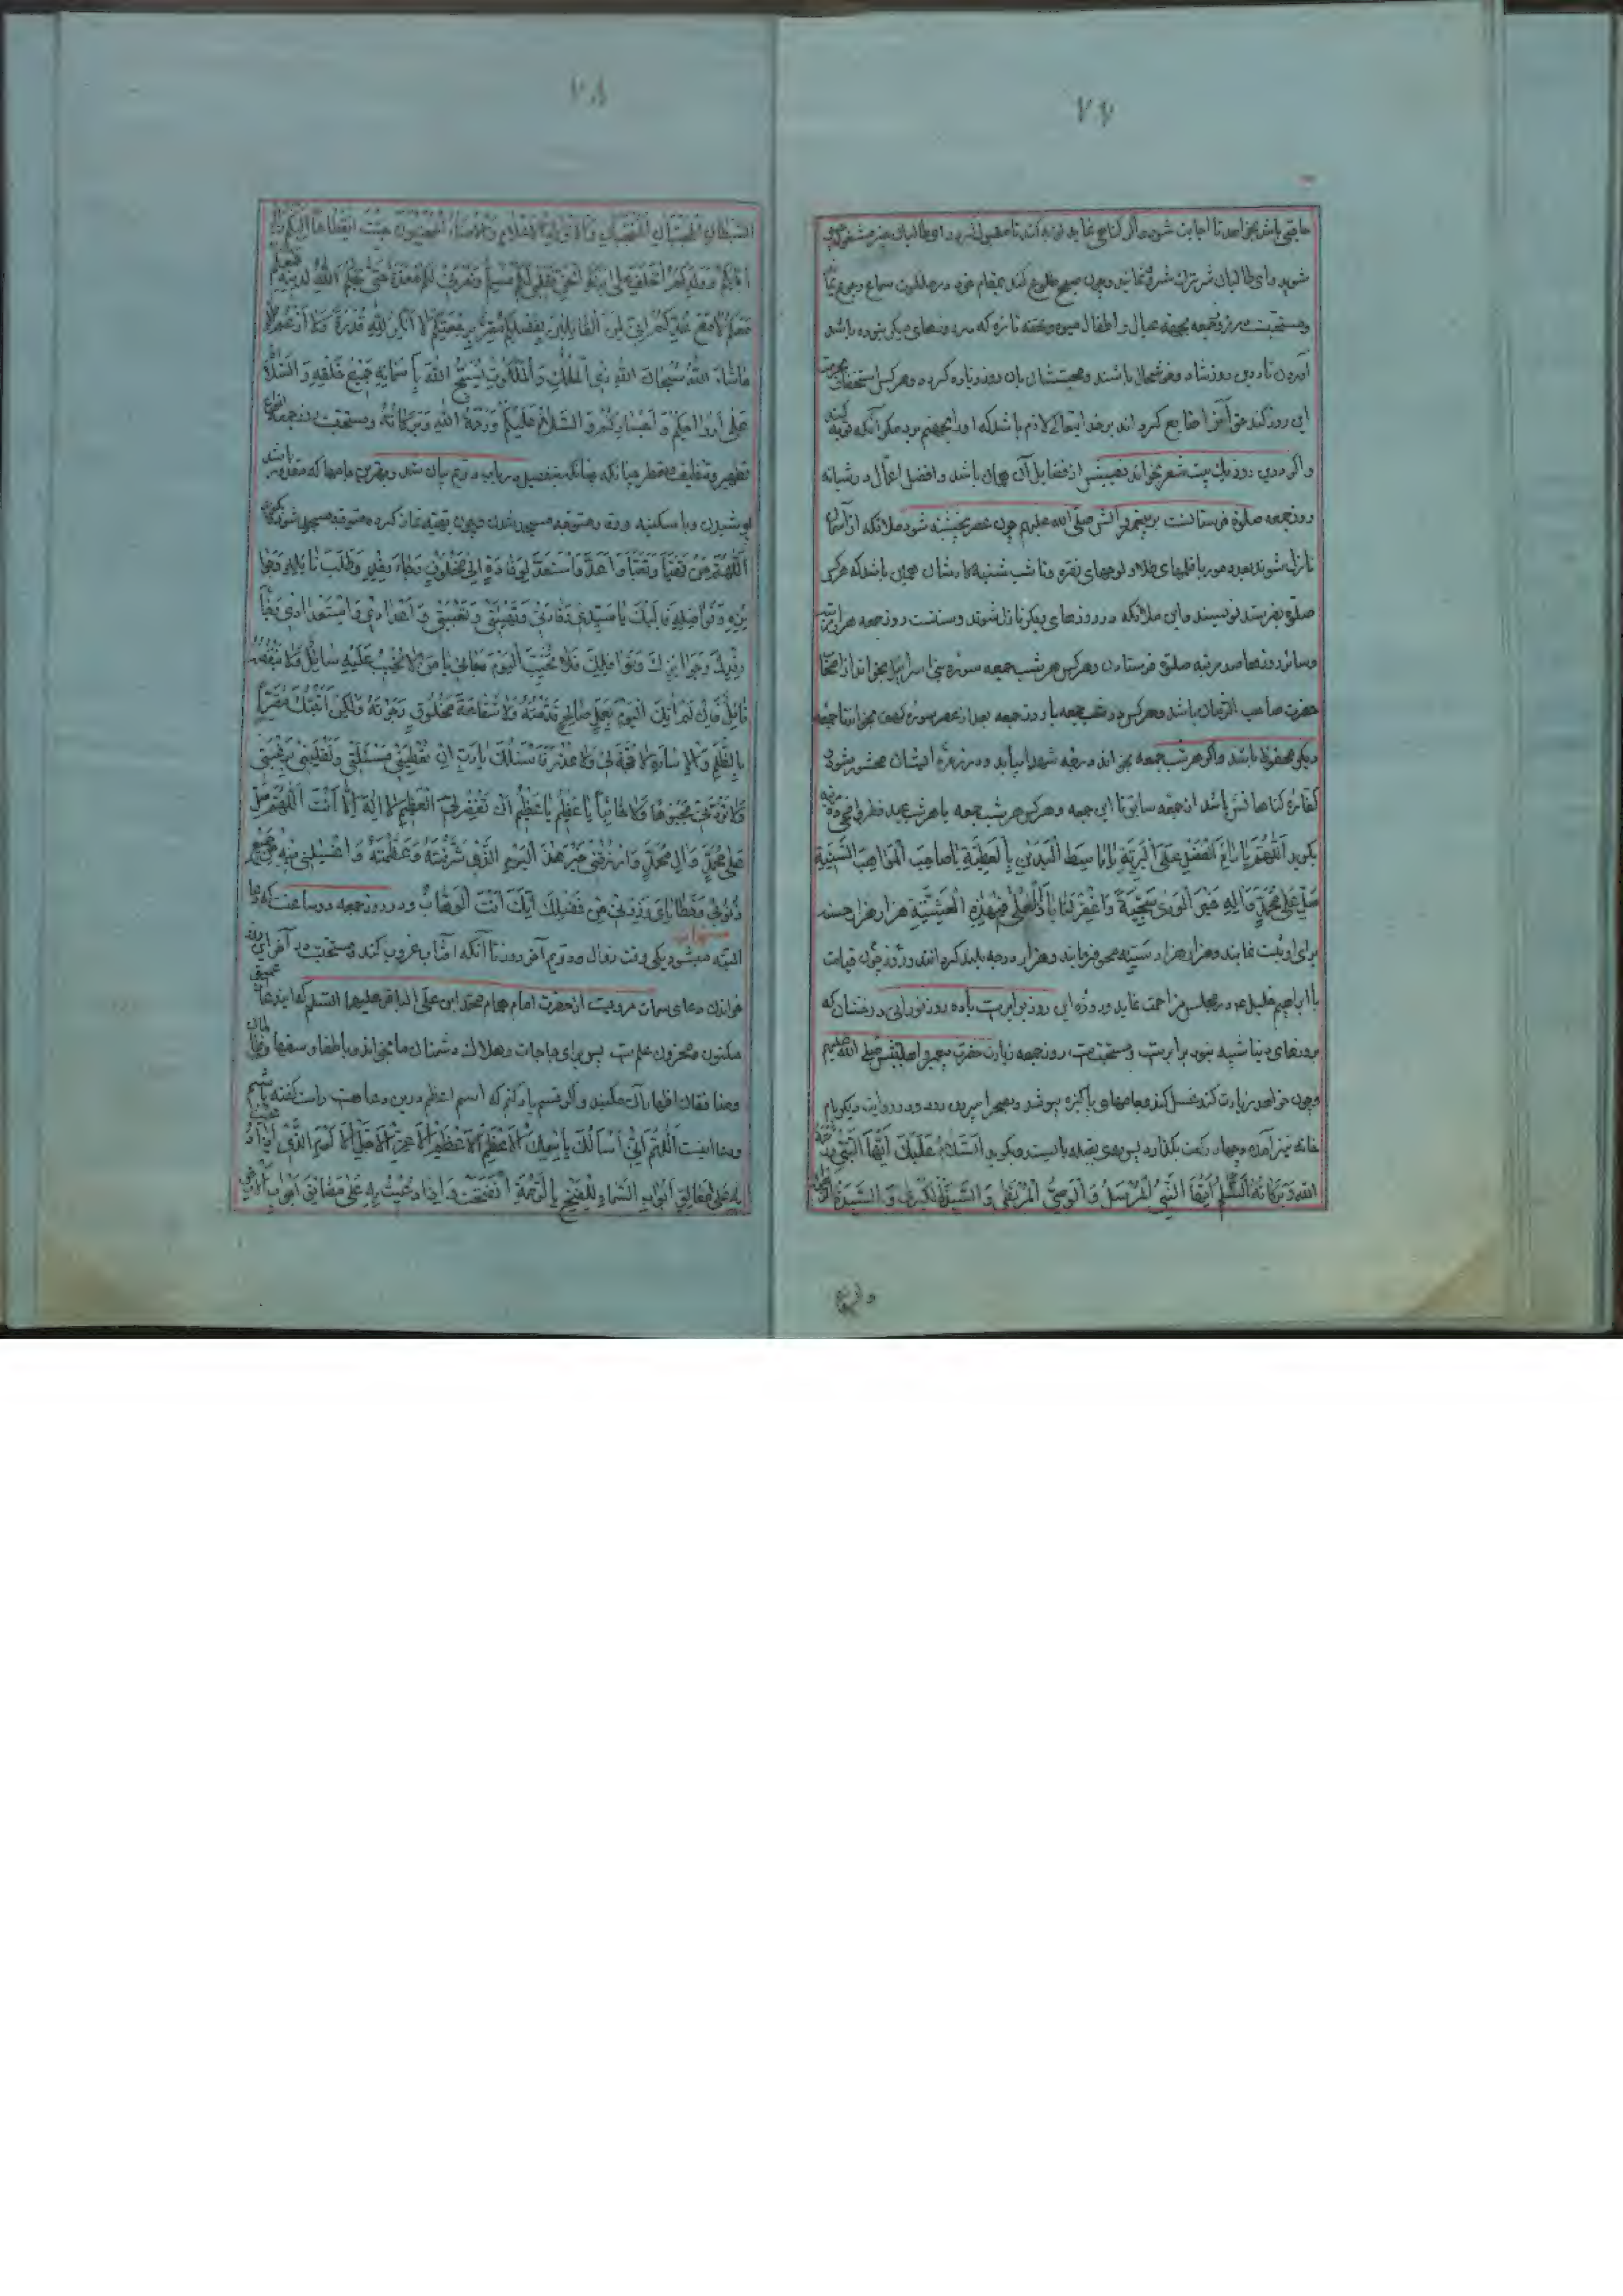 ۲۷
حاجتی باشد بخواهد تا اجابت شود و اگر گناهی نماید توبه کند تا مقبول گردد و ای طالبان خیر مشغول
شوید و ای طالبان شر ترک شر نمائید و چون صبح طلوع کند بمقام خود در ملکوت سماء رجوع نما
و مستحبست در روز جمعه بجهة عیال و اطفال میوه و تحفه تازه که در روزهای دیگر نبوده باشد
آوردن تا در این روز شاد و خوشحال باشند و محبتشان بان روز زیاده گردد و هر کس استخفاف بحرمت
این روز کند حق آنرا ضایع کرده اند بر خدا یتعالی لازم باشد که او را بجهنم برد مگر آنکه توبه کند
و اگر در این روز یک بیت شعر بخواند نصیبش از فضایل آن همان باشد و افضل اعمال در شبانه
روز جمعه صلوة فرستادنست بر پیغمبر و آلش صلی الله علیهم چون عصر پنجشنبه شود ملائکه از آسمان
نازل شوند بعدد مور با قلمهای طلا و لوحهای نقره و تا شب شنبه کارشان همین باشد که هر کس
صلوة بفرستد نویسند و این ملائکه در روزهای دیگر نازل نشوند و سنتست روز جمعه هزار مرتبه
و سائر روزها صد مرتبه صلوة فرستادن و هر کس هر شب جمعه سوره بنی اسرائیل بخواند از اصحاب
حضرت صاحب الزمان باشد و هر کس در شب جمعه یا روز جمعه بعد از عصر سوره کهف بخواند تا جمعه
دیگر محفوظ باشد و اگر هر شب جمعه بخواند درجه شهدا بیابد و در زمره ایشان محشور شود
کفاره گناهانش باشد از جمعه سابق تا این جمعه و هر کس هر شب جمعه یا هر شب عید فطر و اضحی ده مرتبه
بگوید اللهم یا دائم الفضل علی البریة یا باسط الیدین بالعطیة یا صاحب المواهب السنیة
صل علی محمد و آله خیر الوری سجیة و اغفر لنا یا ذا العلی فی هذه العشیة هزار هزار حسنه
برای او ثبت نمایند و هزار هزار سیئه محو فرمایند و هزار درجه بلند کرده اند و روز چون قیامت
با ابراهیم خلیل در مجلس مزاحمت نماید و روزه این روز برابر است با ده روز نورانی درخشان که
بروزهای دنیا شبیه نبود برابر است و مستحبست روز جمعه زیارت حضرت پیغمبر و اهلبیتش صلی الله علیهم
و چون خواهد زیارت کند غسل کند و جامهای پاکیزه بپوشد و بصحرا بیرون رود و در روایت دیگر بام
خانه نیز آمده و چهار رکعت بگذارد پس روی بقبله بایستد و بگوید السلام علیک ایها النبی و رحمة
الله و برکاته السلام علیک ایها النبی المرسل و الوصی المرتضی و السیدة الکبری و السیدة الزهراء
۲۸
السبطان المنتجبان و الاولاد الاعلام و الامناء المنتجبون جئت انقطاعا الیکم و الی
آبائکم و ولدکم الخلف علی برکة الحق فقلبی لکم مسلم و نصرتی لکم معدة حتی یحکم الله لدینه فمعکم
معکم لا مع عدوکم انی لمن القائلین بفضلکم مقر برجعتکم لا انکر لله قدرة و لا ازعم الا
ما شاء الله سبحان الله ذی الملک و الملکوت یسبح الله باسمائه جمیع خلقه و السلام
علی ارواحکم و اجسادکم و السلام علیکم و رحمة الله و برکاته و مستحبست روز جمعه
پوشیدن و با سکینه و وقار متوجه مسجد شدن و چون تهیه نماز کرده متوجه مسجد شود بگوید
اللهم من تهیأ و تعبأ و اعد و استعد لوفادة الی مخلوق رجاء رفده و طلب نائله و جوا
ئزه و نوافله فالیک یا سیدی وفادتی و تهیئتی و تعبئتی و اعدادی و استعدادی رجاء
رفدک و جوائزک و نوافلک فلا تخیب الیوم رجائی یا من لا یخیب علیه سائل و لا ینقصه
نائل فانی لم آتک الیوم بعمل صالح قدمته و لا شفاعة مخلوق رجوته ولکن اتیتک مقرا
بالظلم و الاساءة لا حجة لی و لا عذر فاسئلک یا رب ان تعطینی مسئلتی و تقلبنی برغبتی
و لا تردنی مجبوها و لا خائبا یا عظیم یا عظیم ان تغفر لی العظیم لا اله الا انت اللهم صل
علی محمد و آل محمد و ارزقنی خیر هذا الیوم الذی شرفته و عظمته و اغسلنی فیه من جمیع
ذنوبی و خطایای و زدنی من فضلک انک انت الوهاب و در روز جمعه دو ساعت که دعا
مستجاب
البته میشود یکی وقت زوال و دویم آخر روز تا آنکه آفتاب غروب کند و مستحبست در آخر این روز
خواندن دعای سمات مرویست از حضرت امام همام محمد ابن علی الباقر علیهما السلام که ایندعا
مکنون و مخزون علم پس برای حاجات و هلاک دشمنان ما بخوانید و باطفال و سفهاء و زنان
و منافقان اظهار آن مکنید و اگر قسم یاد کنم که اسم اعظم در این دعا هست راست گفته باشم
و دعا اینست اللهم انی اسألک باسمک الاعظم الاعظم الاعز الاجل الاکرم الذی اذا دعیت
به علی مغالق ابواب السماء للفتح بالرحمة انفتحت و اذا دعیت به علی مضائق ابواب الارض